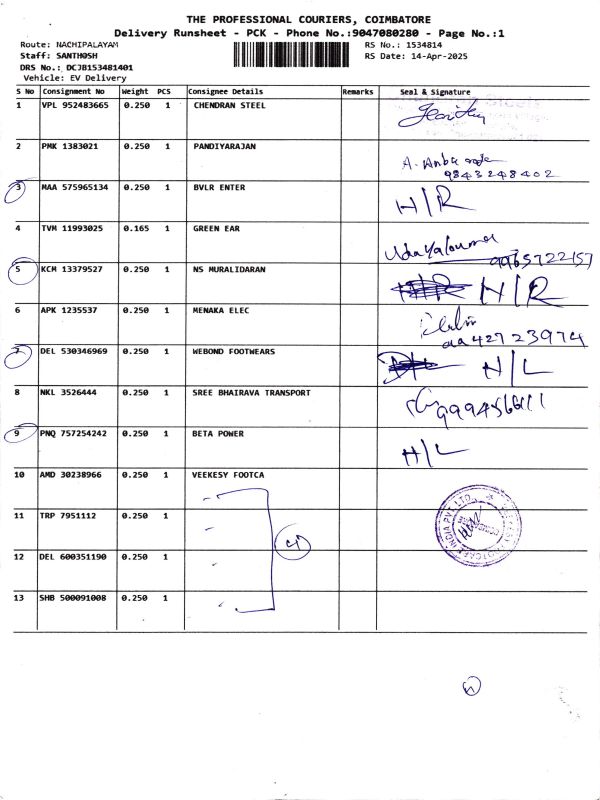 THE PROFESSIONAL COURIERS, COIMBATORE
Delivery Runsheet - PCK - Phone No.:9047080280 - Page No.:1
Route: NACHIPALAYAM
Staff: SANTHOSH
DRS No.: DCJB153481401
Vehicle: EV Delivery
RS No.: 1534814
RS Date: 14-Apr-2025
S No Consignment No Weight PCS Consignee Details Remarks Seal & Signature
1 VPL 952483665 0.250 1 CHENDRAN STEEL
2 PMK 1383021 0.250 1 PANDIYARAJAN A. Anba
9843248402
3 MAA 575965134 0.250 1 BVLR ENTER H/R
4 TVM 11993025 0.165 1 GREEN EAR
9965722157
5 KCM 13379527 0.250 1 NS MURALIDARAN H/R
6 APK 1235537 0.250 1 MENAKA ELEC
7 DEL 530346969 0.250 1 WEBOND FOOTWEARS H/L
8 NKL 3526444 0.250 1 SREE BHAIRAVA TRANSPORT
9 PNQ 757254242 0.250 1 BETA POWER H/L
10 AMD 30238966 0.250 1 VEEKESY FOOTCA
11 TRP 7951112 0.250 1
12 DEL 600351190 0.250 1
13 SHB 500091008 0.250 1
4